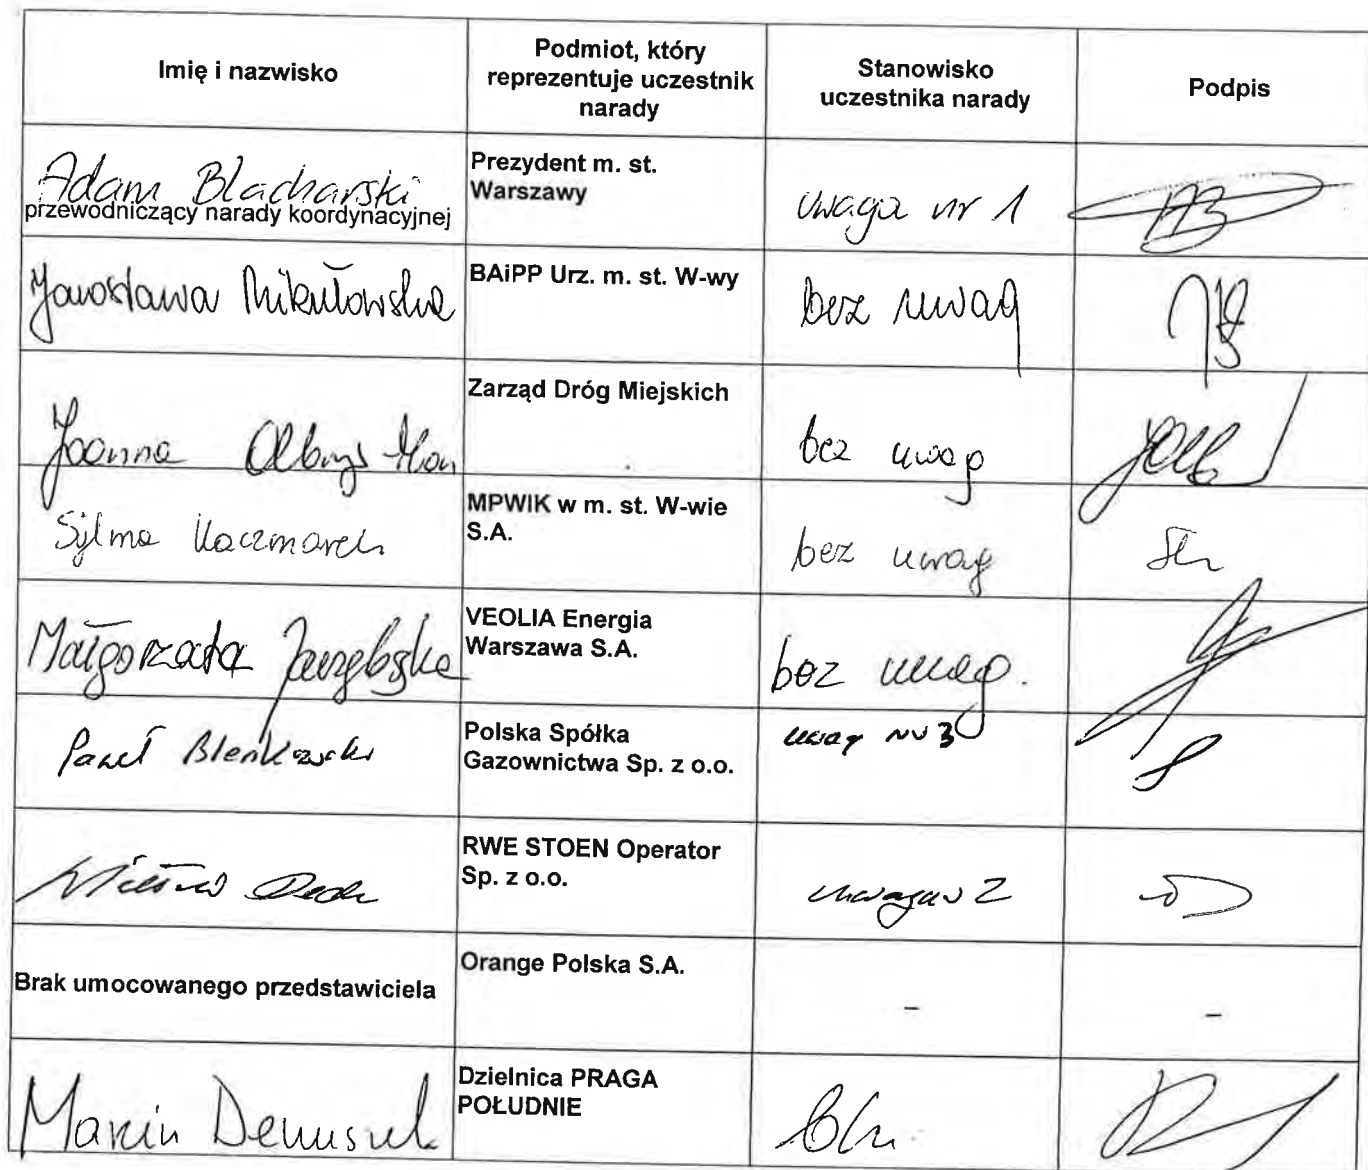 Imię i nazwisko
Podmiot, który
reprezentuje uczestnik
narady
Stanowisko
uczestnika narady
Podpis
Adam Blacharski
przewodniczący narady koordynacyjnej
Prezydent m. st.
Warszawy
uwaga nr 1
Jarosława Mikułowska
BAiPP Urz. m. st. W-wy
bez uwag
Joanna
Zarząd Dróg Miejskich
bez uwag
Kaczmarek
MPWIK w m. st. W-wie
S.A.
bez uwag
Małgorzata
VEOLIA Energia
Warszawa S.A.
bez uwag.
Paweł
Polska Spółka
Gazownictwa Sp. z o.o.
uwag nr 3
RWE STOEN Operator
Sp. z o.o.
Brak umocowanego przedstawiciela
Orange Polska S.A.
-
-
Marcin
Dzielnica PRAGA
POŁUDNIE